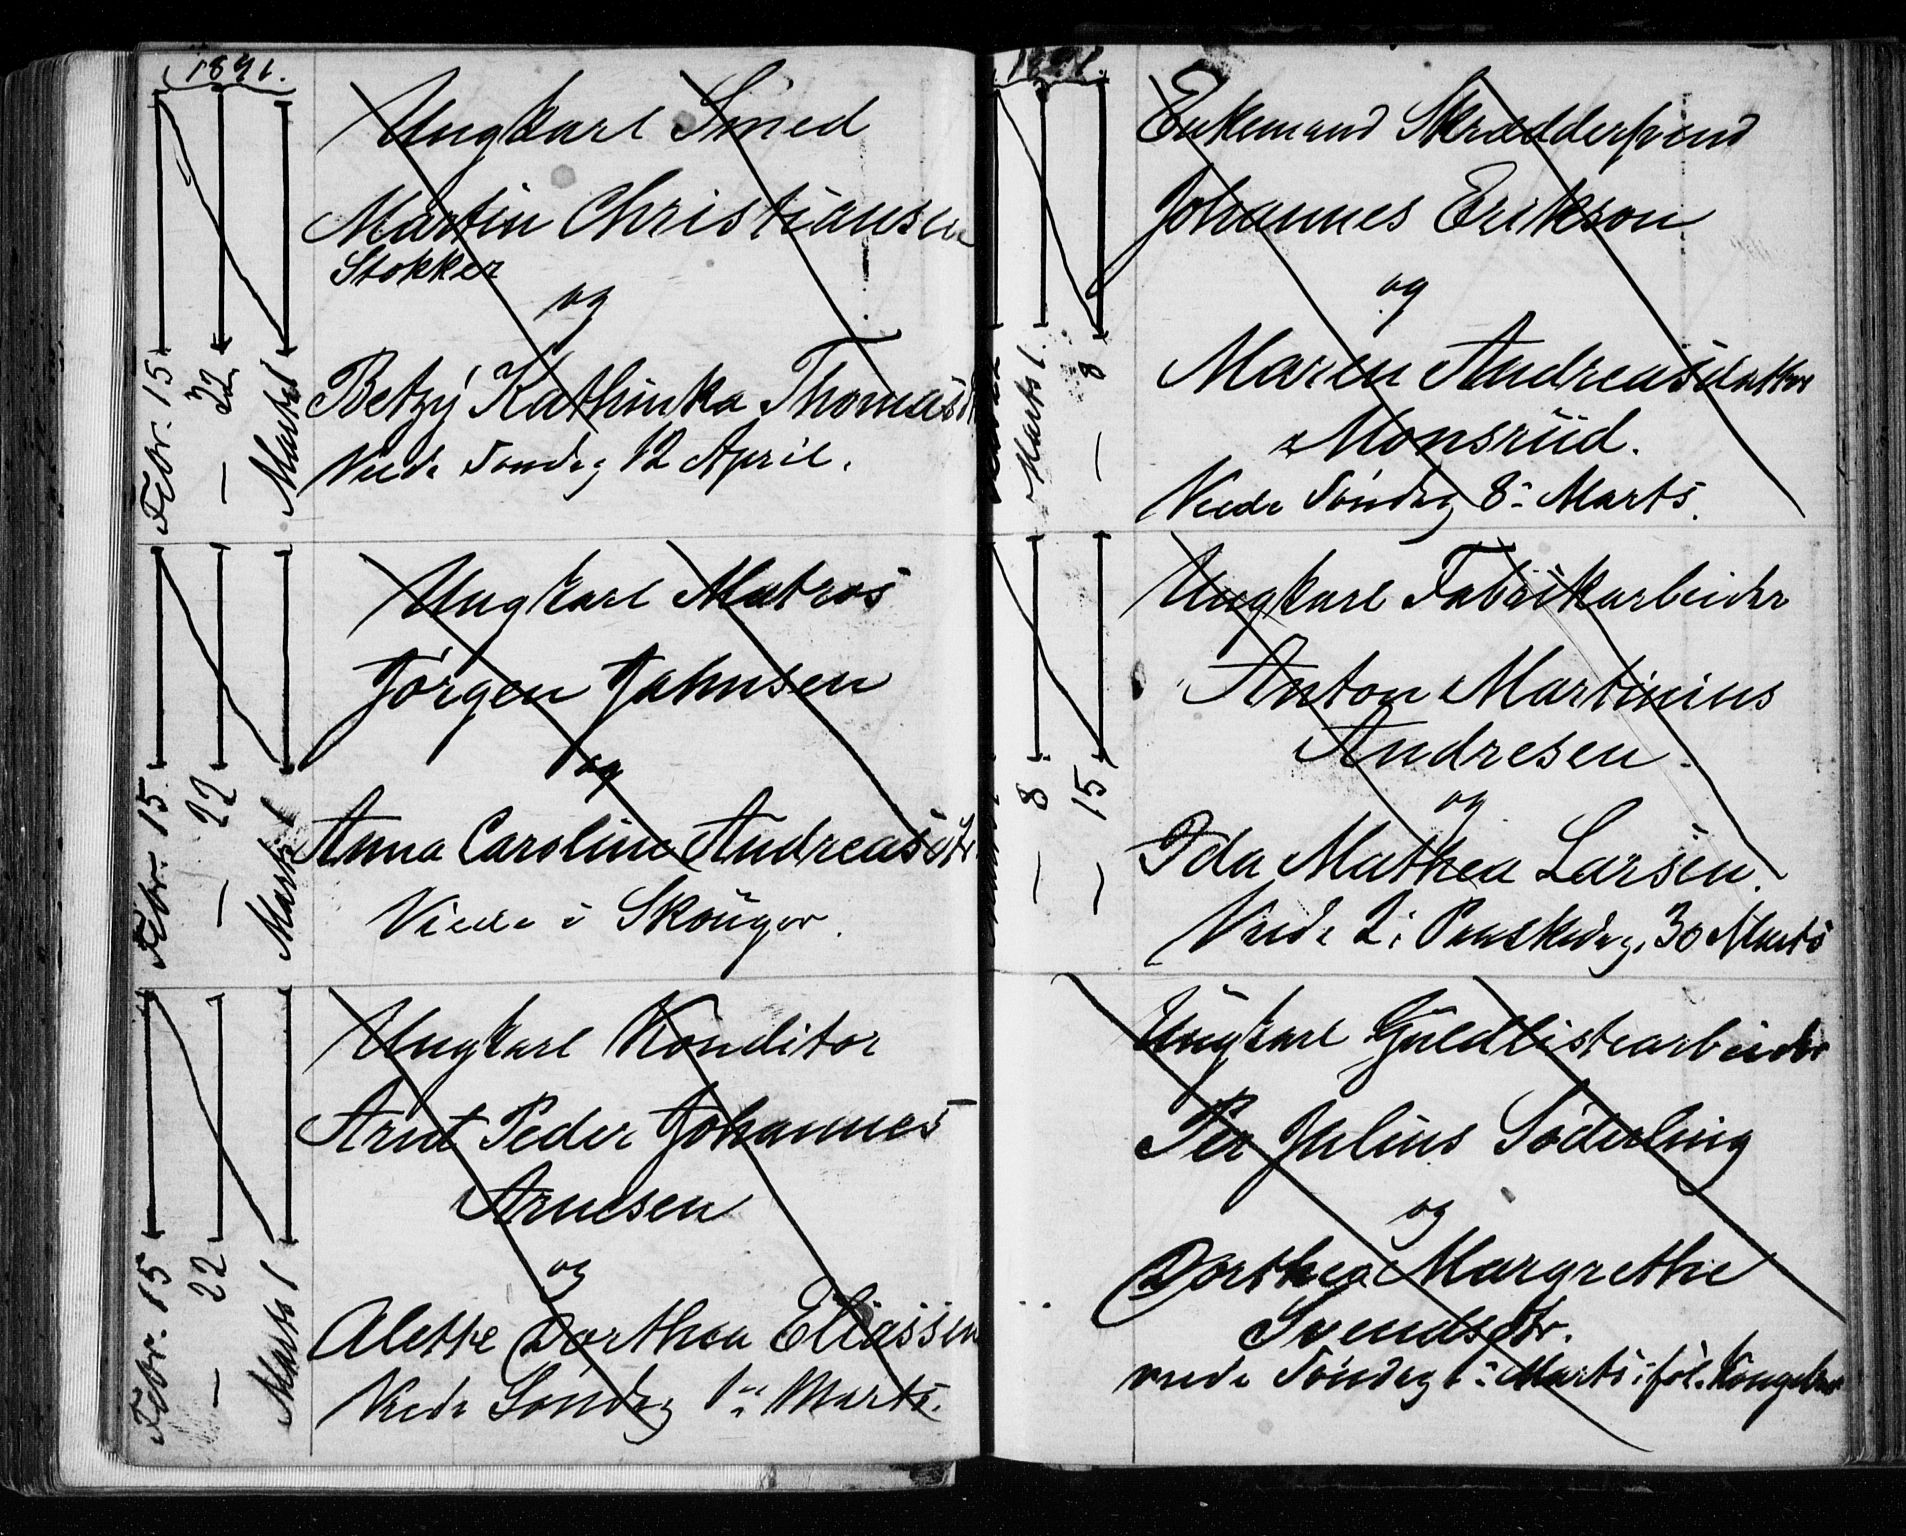 1891.
Febr. 15
— 22
Marts 1
Ungkarl Smed
Martin Christiansen
Stokker
og
Betzy Kathinka Thomasd
Viede Søndag 12 April.
Febr. 15
— 22
Marts 1
Ungkarl Matros
Jørgen Jahnsen
og
Anna Caroline Andreasdtr
Viede i Skouger.
Febr. 15
— 22
Marts 1
Ungkarl Konditor
Arnt Peder Johannes
Arnesen
og
Alette Dorthea Eliassen
Viede Søndag 1ste Marts.
1891.
Marts 1.
— 8
Enkemand Skrædersvend
Johannes Erikson
og
Maren Andreasdatter
Monsrüd.
Viede Søndag 8: Marts.
— 8
— 15
Ungkarl Fabrikarbeider
Anton Martinius
Andresen.
og
Ida Mathea Larsen.
Viede 2: Paaskedag, 30 Marts
Ungkarl Guldlistearbeider
Per Julius Söderling
og
Dorthea Margrethe
Svendsdtr.
viede Søndag 1: Marts iføl. Kongebr